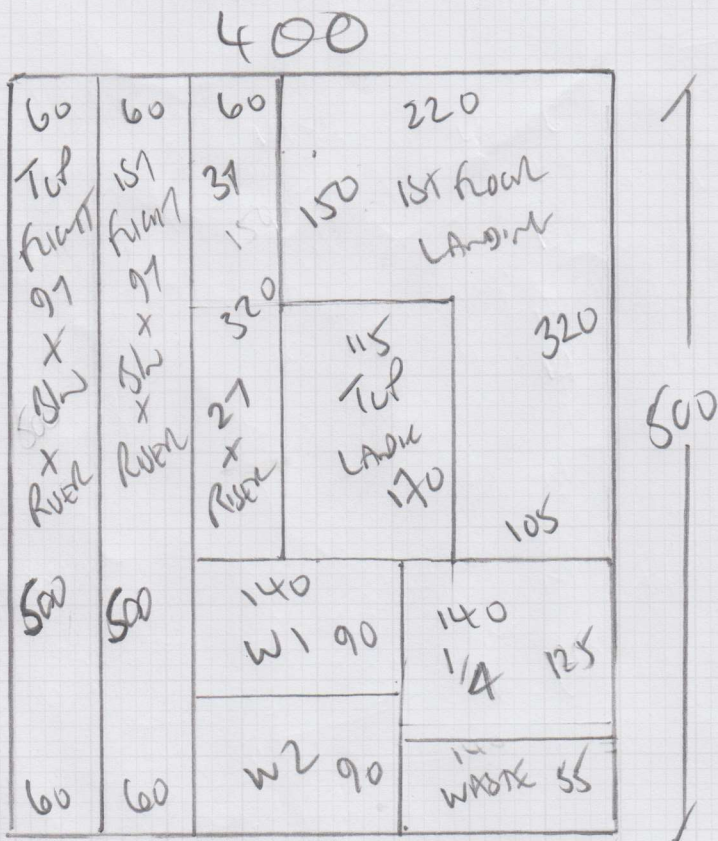 400
60
TOP
FLIGHT
97
X
X
RISER
500
60
60
1ST
FLIGHT
97
X
X
RISER
500
60
60
150
320
27
X
RISER
220
150
1ST FLOOR
LANDING
320
105
115
TOP
LANDIN
170
140
W1 90
W2 90
140
1/4 125
140
WASTE 55
500